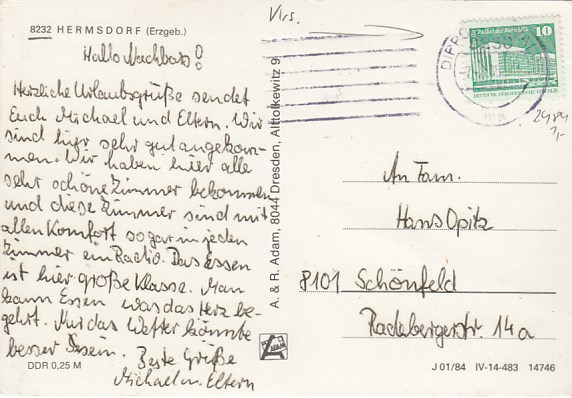 8232 HERMSDORF (Erzgeb.)
Hallo Nachbars!
Herzliche Urlaubsgrüße sendet
Euch Michael und Eltern. Wir
sind hier sehr gut angekom-
men. Wir haben hier alle
sehr schöne Zimmer bekommen
und diese Zimmer sind mit
allen Komfort sogar in jeden
Zimmer ein Radio. Das Essen
ist hier große Klasse. Man
kann Essen was das Herz be-
gehrt. Nur das Wetter könnte
besser sein.
Beste Grüße
Michael u. Eltern
DDR 0,25 M
A. & R. Adam, 8044 Dresden, Altlockwitz 9
ADAM
Vlrs.
10
2484
1,-
An Fam.
Hans Opitz
8101 Schönfeld
Radebergerstr. 14a
J 01/84 IV-14-483 14746